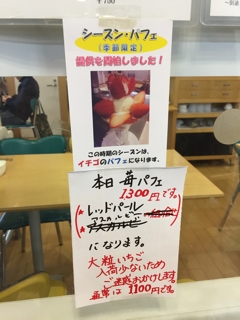 ¥750
シーズン・パフェ
(季節限定)
提供を開始しました!
この時期のシーズンは、
イチゴのパフェになります。
本日 苺パフェ
1300円です。
レッドパール
アスカルビー
になります。
大粒いちご
入荷少ないため
ご迷惑おかけします。
通常は 1100円です。